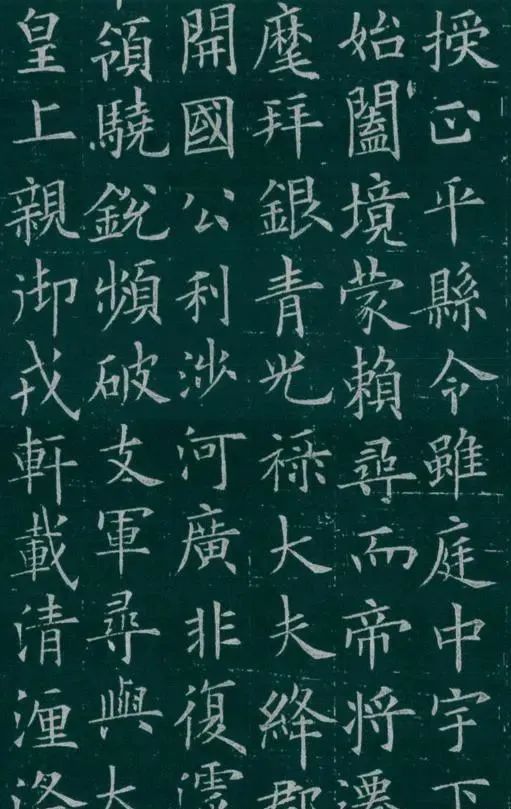 授正平縣令雖庭中宇下
始闔境蒙賴尋而帝將
麾拜銀青光祿大夫絳郡
開國公利涉河廣非復濡
領驍銳頻破支軍尋與大
皇上親御戎軒載清瀍洛